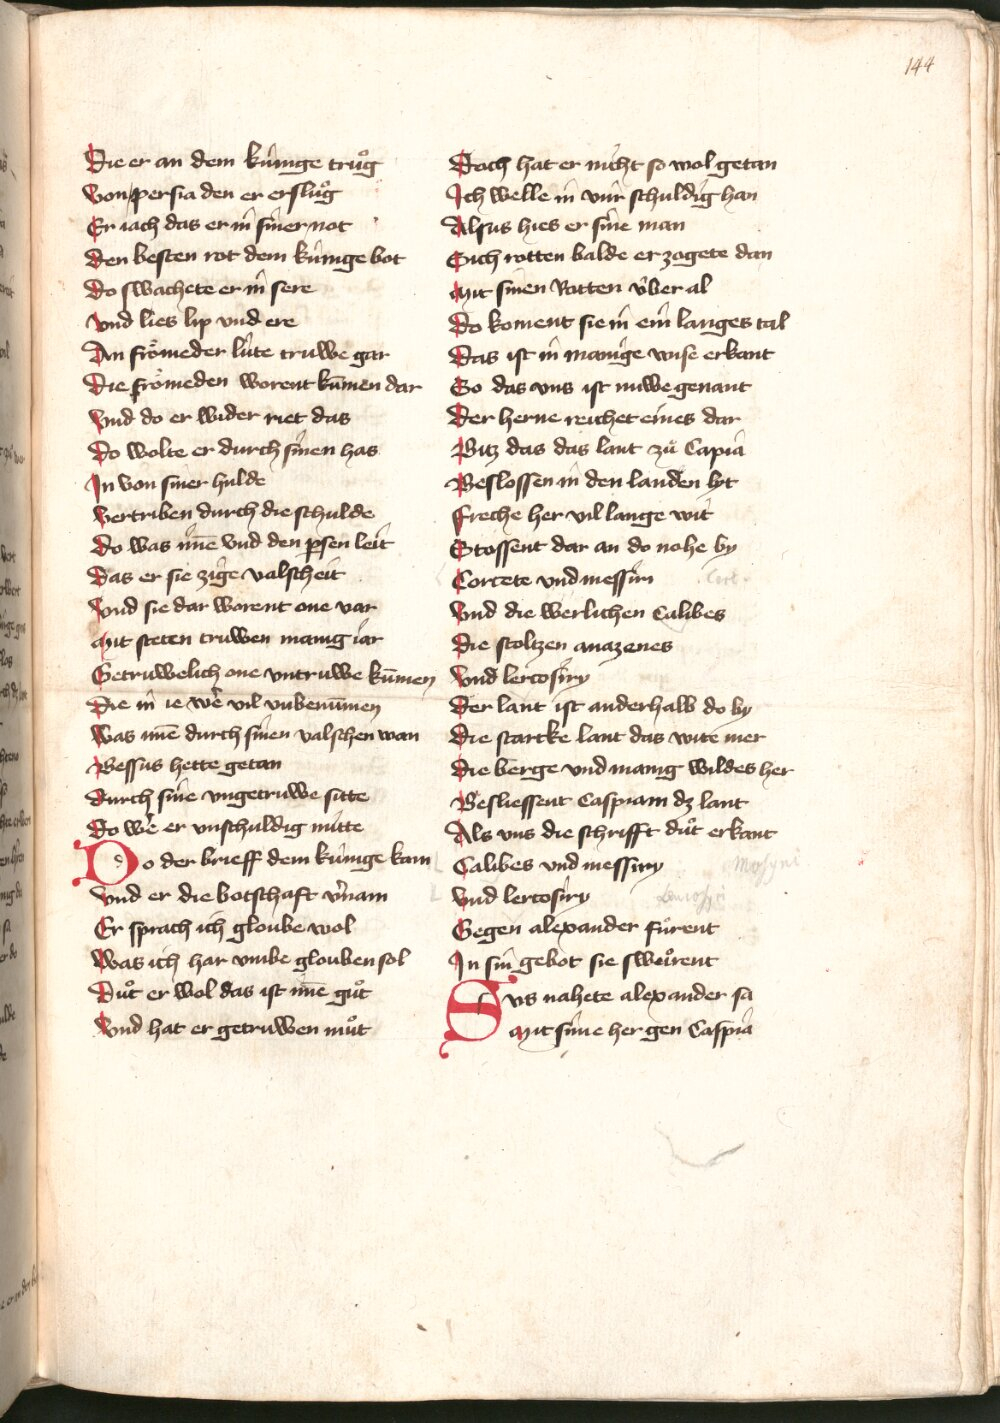 144
Die er an dem kúnige trůg
Von persia den er erslůg
Er iach das er in siner not
Den besten rot dem kúnige bot
Do swachete er in sere
Vnd lies lip vnd ere
An frömeder lúte truwe gar
Die frömeden worent kūmen dar
Vnd do er wider riet das
Do wolte er durch sinen has
In von siner hulde
Vertriben durch die schulde
Do was ime vnd den psen leit
Das er sie zige valscheit
Vnd sie dar worent one var
Mit steten truwen manig iar
Getruwelich one vntruwe kūmen
Die in ie we vil vnbenūmen
Was ime durch sinen valschen wan
Bessus hette getan
Durch sine vngetruwe sitte
Do we er vnschuldig mitte
Do der brieff dem kúnige kam
Vnd er die botschaft vnam
Er sprach ich gloube wol
Was ich har vmbe glouben sol
Důt er wol das ist ime gůt
Vnd hat er getruwen můt
Doch hat er nicht so wol getan
Ich welle in vnúr schuldig han
Alsus hies er sine man
Sich rotten balde er zogete dan
Mit sinen Rotten v́ber al
Do koment sie in ein langes tal
Das ist in manige wise erkant
So das vns ist niwe genant
Der herne reichet eines dar
Bitz das das lant zů Capia
Beslossen in den landen lyt
Freche her vil lange wit
Stossent dar an do nohe by
Cortete vnd messiri
Vnd die werlichen Calibes
Die stoltzen amazenes
Vnd lercosiry
Der lant ist anderhalb do by
Die starcke lant das wite mer
Die berge vnd manig wildes her
Besliessent Caspiam dz lant
Als vns die schrifft důt erkant
Calibes vnd messiry
Mosyni
Vnd lercosiry
Gegen alexander fůrent
In sin gebot sie swůrent
Svs nahete alexander sa
Mit sime her gen Caspia